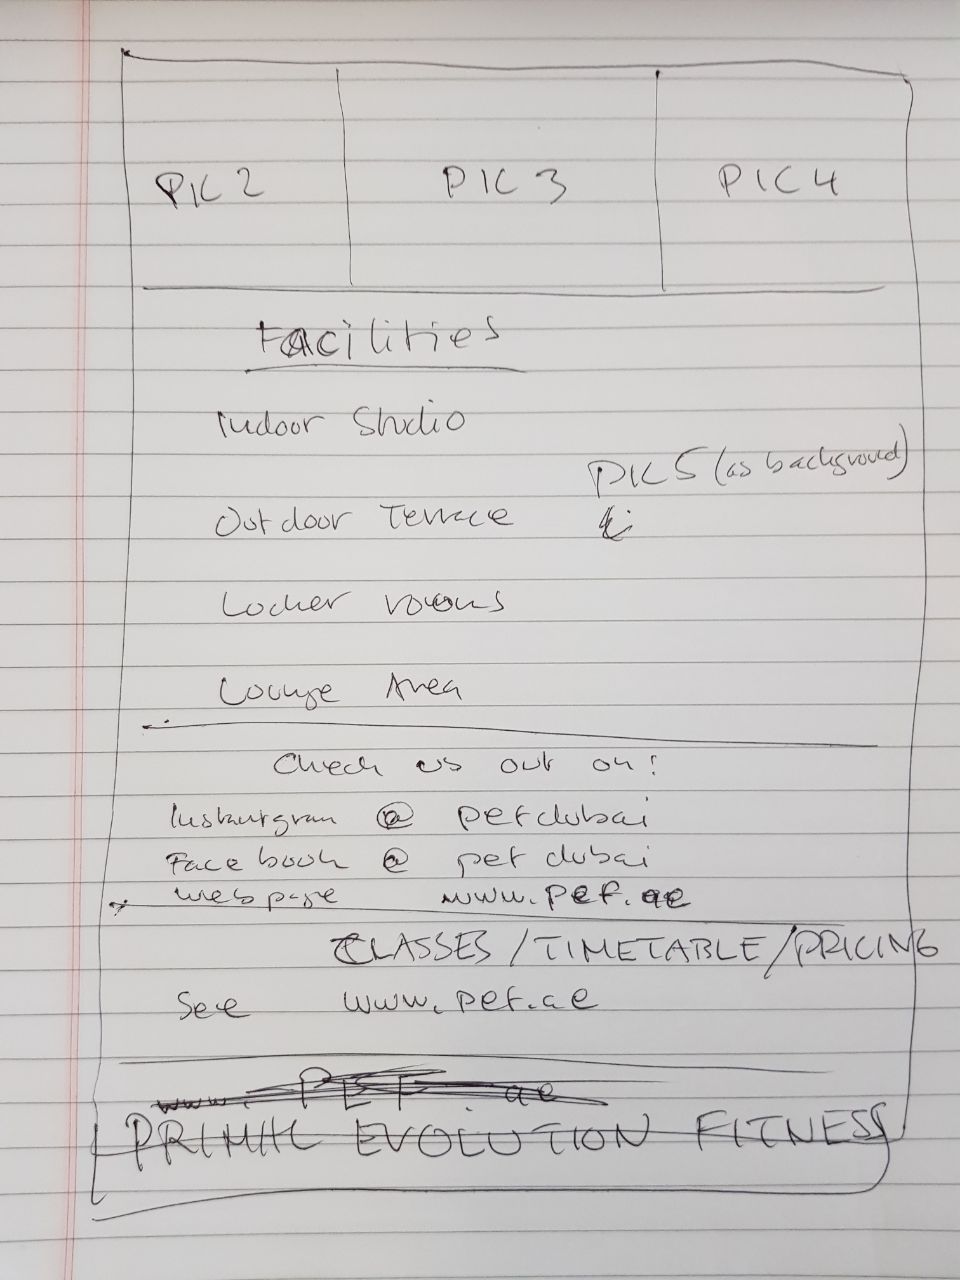 PIC 2 PIC 3 PIC 4
Facilities
Indoor Studio
PIC 5 (as background)
Outdoor Terrace
Locker rooms
Lounge Area
Check us out on:
Instargram @ pefdubai
Facebook @ pef dubai
webpage www.pef.ae
CLASSES / TIMETABLE / PRICING
See www.pef.ae
www. PEF. ae
PRIMAL EVOLUTION FITNESS